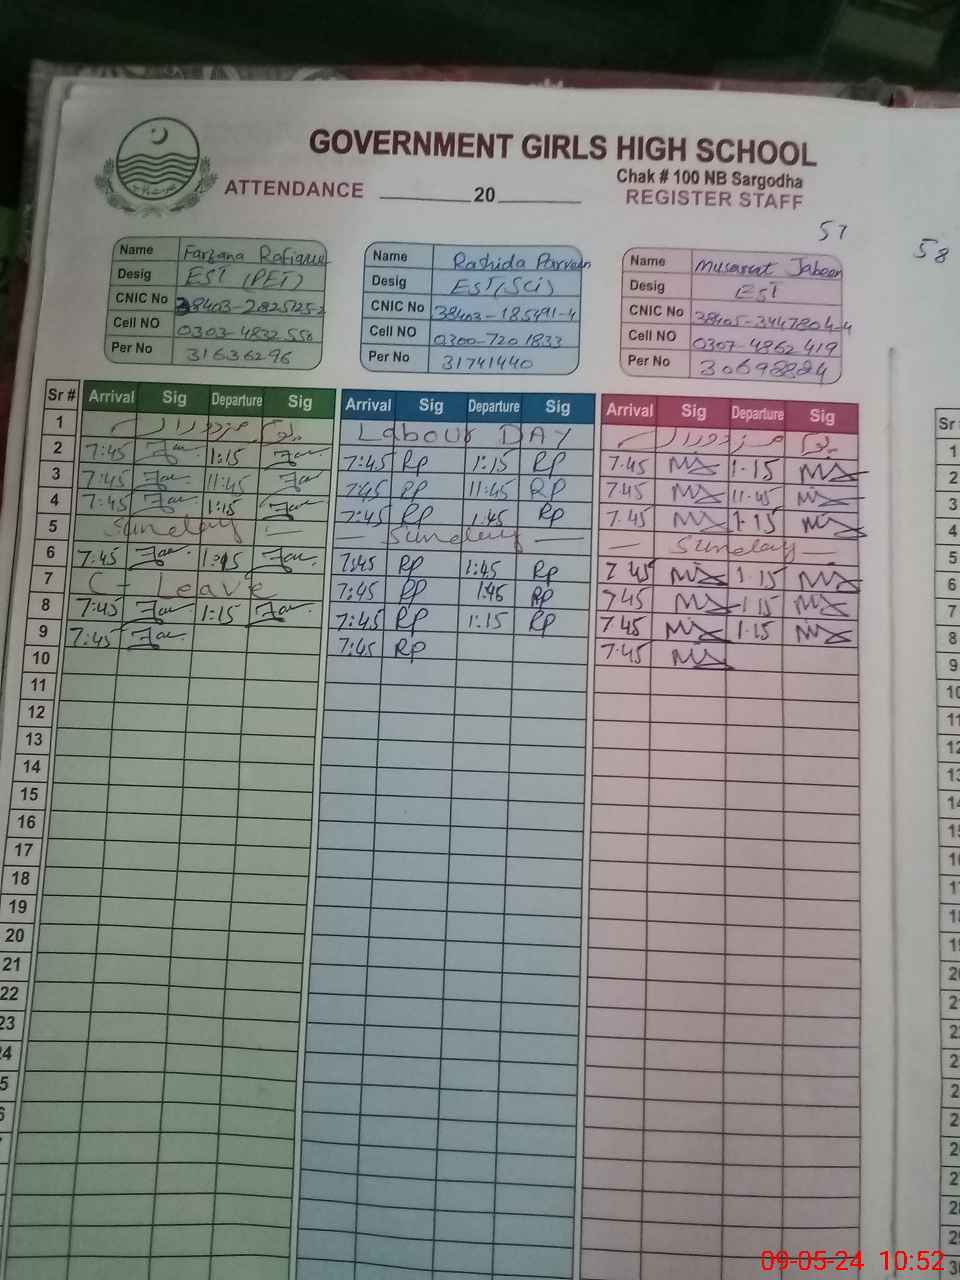 GOVERNMENT GIRLS HIGH SCHOOL
Chak # 100 NB Sargodha
ATTENDANCE ________ 20 ________ REGISTER STAFF
57
58
Name Farzana Rafique
Desig EST (PET)
CNIC No 38403-2825125-2
Cell NO 0303-4832550
Per No 31636296
Name Rashida Parveen
Desig EST (Sci)
CNIC No 38403-185491-4
Cell NO 0300-7201833
Per No 31741440
Name Musarrat Jabeen
Desig EST
CNIC No 38405-3447804-4
Cell NO 0307-4862419
Per No 30698824
Sr # Arrival Sig Departure Sig Arrival Sig Departure Sig Arrival Sig Departure Sig
1 Labour DAY
2 7:45 Far 1:15 Far 7:45 RP 1:15 RP 7:45 1:15
3 7:45 Far 11:45 Far 7:45 RP 11:45 RP 7:45 11:45
4 7:45 Far 1:15 Far 7:45 RP 1:45 RP 7:45 1:15
5 Sunday — — Sunday — — Sunday —
6 7:45 Far Far 7:45 RP 1:45 RP 7 45 1.15
7 C - Leave 7:45 RP 1:45 RP 7:45 1:15
8 7:45 Far 1:15 Far 7:45 RP 1:15 RP 7 45 1.15
9 7:45 Far 7:45 RP 7:45
10
11
12
13
14
15
16
17
18
19
20
21
22
23
Sr
1
2
3
4
5
6
7
8
9
09-05-24 10:52